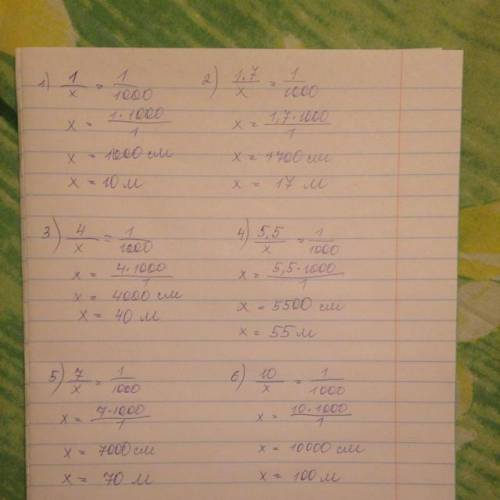 1) 1/x = 1/1000
x = 1·1000/1
x = 1000 см
x = 10 м
2) 1,7/x = 1/1000
x = 1,7·1000/1
x = 1700 см
x = 17 м
3) 4/x = 1/1000
x = 4·1000/1
x = 4000 см
x = 40 м
4) 5,5/x = 1/1000
x = 5,5·1000/1
x = 5500 см
x = 55 м
5) 7/x = 1/1000
x = 7·1000/1
x = 7000 см
x = 70 м
6) 10/x = 1/1000
x = 10·1000/1
x = 10000 см
x = 100 м